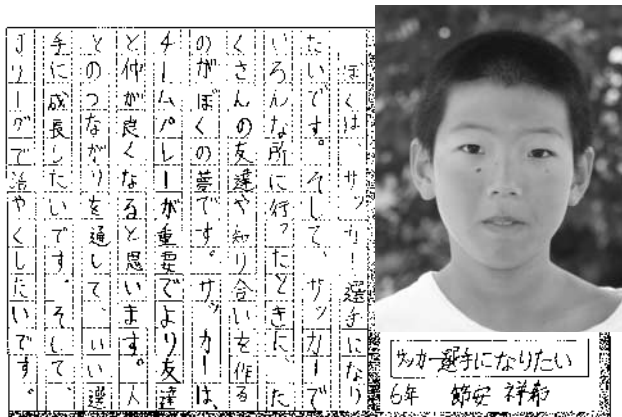 ぼくは、サッカー選手になり
たいです。そして、サッカーで
いろんな所に行ったときに、た
くさんの友達や知り合いを作る
のがぼくの夢です。サッカーは、
チームパレーが重要でより友達
と仲が良くなると思います。人
とのつながりを通して、いい選
手に成長したいです。そして、
Jリーグで活やくしたいです。
サッカー選手になりたい
6年 節安 祥